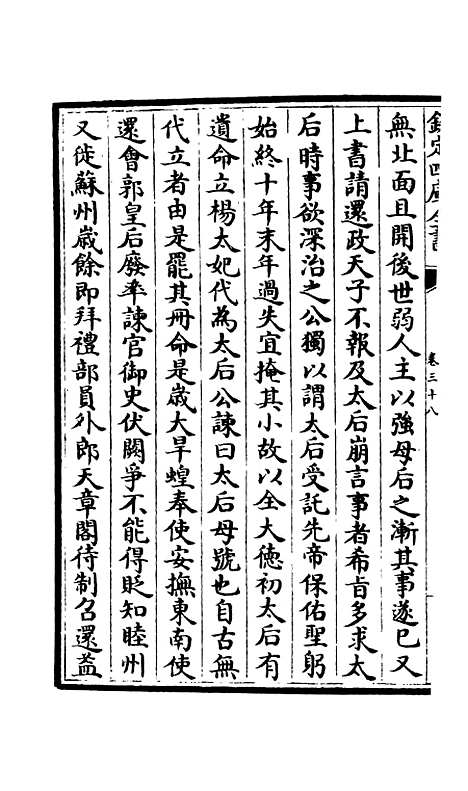 欽定四庫全書
卷三十八
無北面且開後世弱人主以強母后之漸其事遂已又
上書請還政天子不報及太后崩言事者希旨多求太
后時事欲深治之公獨以謂太后受託先帝保佑聖躬
始終十年未年過失宜掩其小故以全大德初太后有
遺命立楊太妃代為太后公諫曰太后母號也自古無
代立者由是罷其冊命是嵗大旱蝗奉使安撫東南使
還會郭皇后廢率諫官御史伏閤爭不能得貶知睦州
又徙蘇州嵗餘即拜禮部員外郎天章閣待制召還益